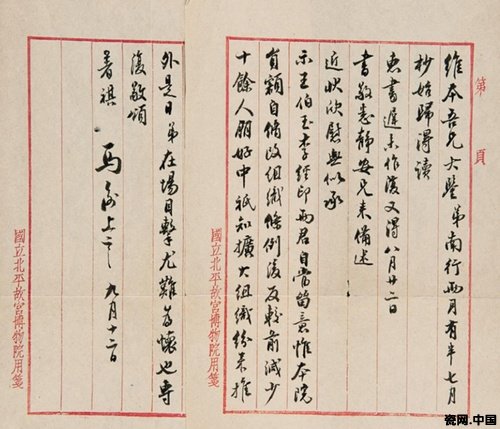 第 頁
維本吾兄大鑒弟南行兩月有半七月
杪始歸得讀
惠書遲未作復又得八月廿二日
書敬悉靜安兄來備述
近狀欣慰無似承
示王伯玉李經印兩君自當留意惟本院
負額自修改組織條例後反較前減少
十餘人朋好中祇知擴大組織紛來推
國立北平故宮博物院用箋
外是日弟在場目擊尤難為懷也專
復敬頌
著祺
馬衡上言 九月十二日
國立北平故宮博物院用箋
瓷网.中国